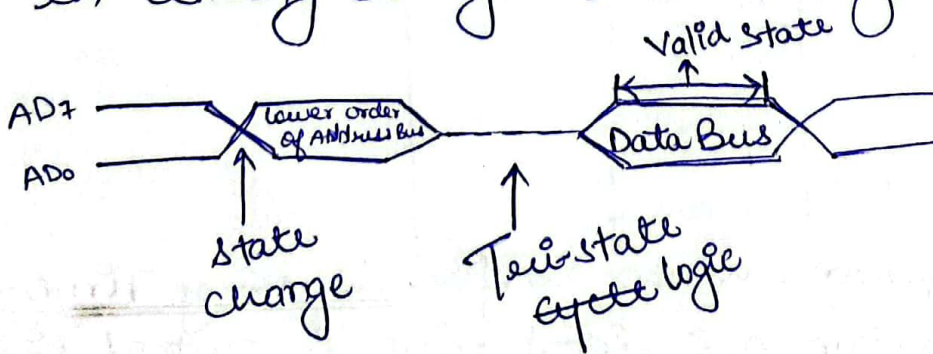 Valid state
AD7
Lower order
of Address Bus
Data Bus
AD0
state
change
Tri-state
cycle logic